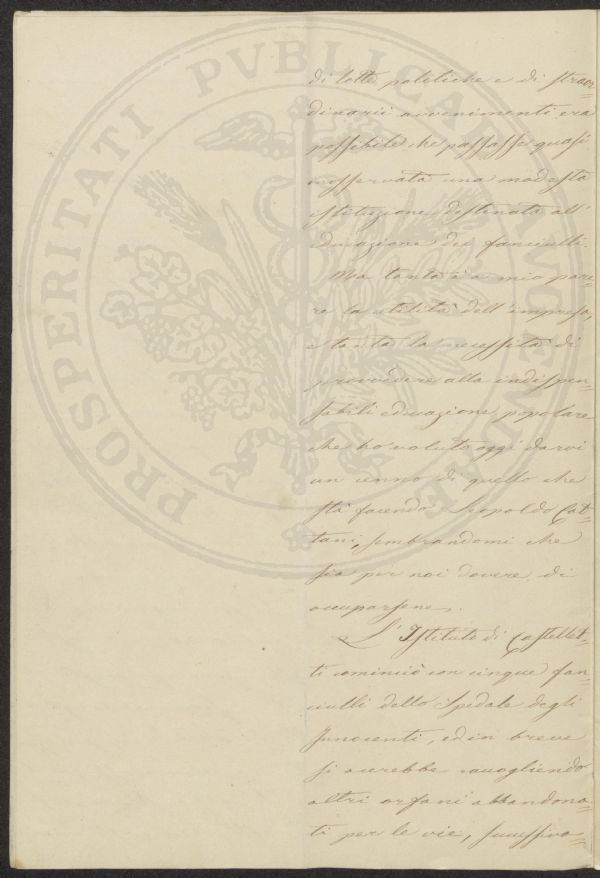 PROSPERITATI PVBLICAE AVGENDAE
di lotte politiche e di straor=
dinarii avvenimenti era
possibile che passasse quasi
inosservata una modesta
istituzione destinata all'
educazione dei fanciulli.
Ma tanta è a mio pare=
re la utilità dell'impresa,
e tanta la necessità di
provvedere alla indispen=
sabili educazione popolare
che ho voluto oggi darvi
un cenno di quello che
sta facendo Leopoldo Cat=
tani, sembrandomi che
sia per noi dovere di
occuparsene.
L'Istituto di Castellet=
ti cominciò con cinque fan=
ciulli dello Spedale degli
Innocenti, ed in breve
si accrebbe accogliendo
altri orfani abbandona=
ti per le vie, successiva=